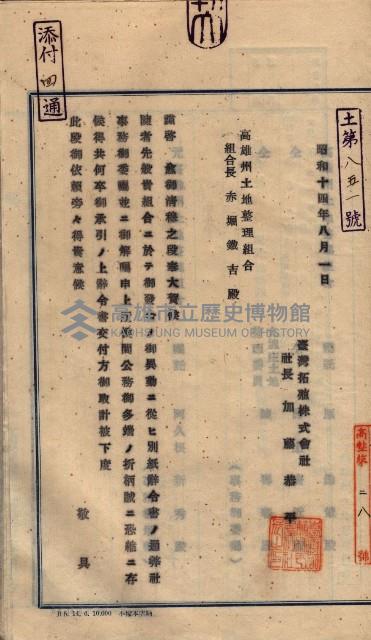 土第八五一號
昭和十四年八月一日
臺灣拓殖株式會社
社長 加藤恭平
高雄州土地整理組合
組合長 赤堀鐵吉殿
謹啓 愈御清穆之段奉大賀候
陳者先般貴組合ニ於テ御發令ノ御異動ニ從ヒ別紙辭合書ノ通弊社
事務御委囑並ニ御解囑申上度候間公務御多端ノ折柄誠ニ恐縮ニ存
候得共何卒御承引ノ上辭令書交付方御取計被下度
此段御依賴旁々得貴意候
敬具
添付四通
高整築二八號
高雄市立歷史博物館
KAOHSIUNG MUSEUM OF HISTORY